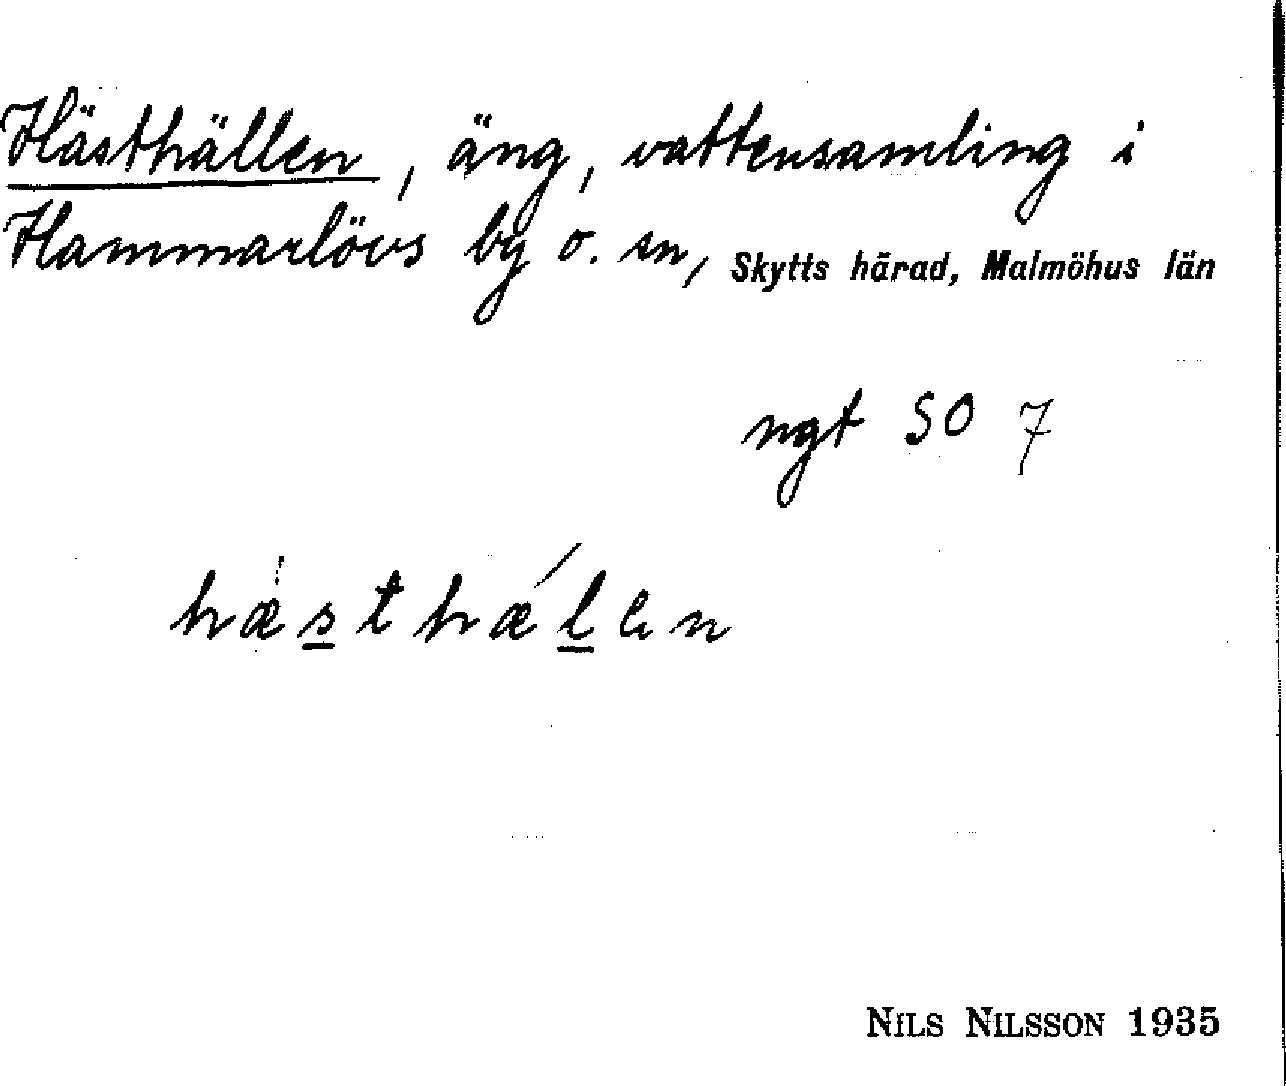 Hästhällen, äng, vattensamling i
Hammarlövs by o. sn, Skytts härad, Malmöhus län
ngt SO 7
hæ̀sthǽlen
NILS NILSSON 1935